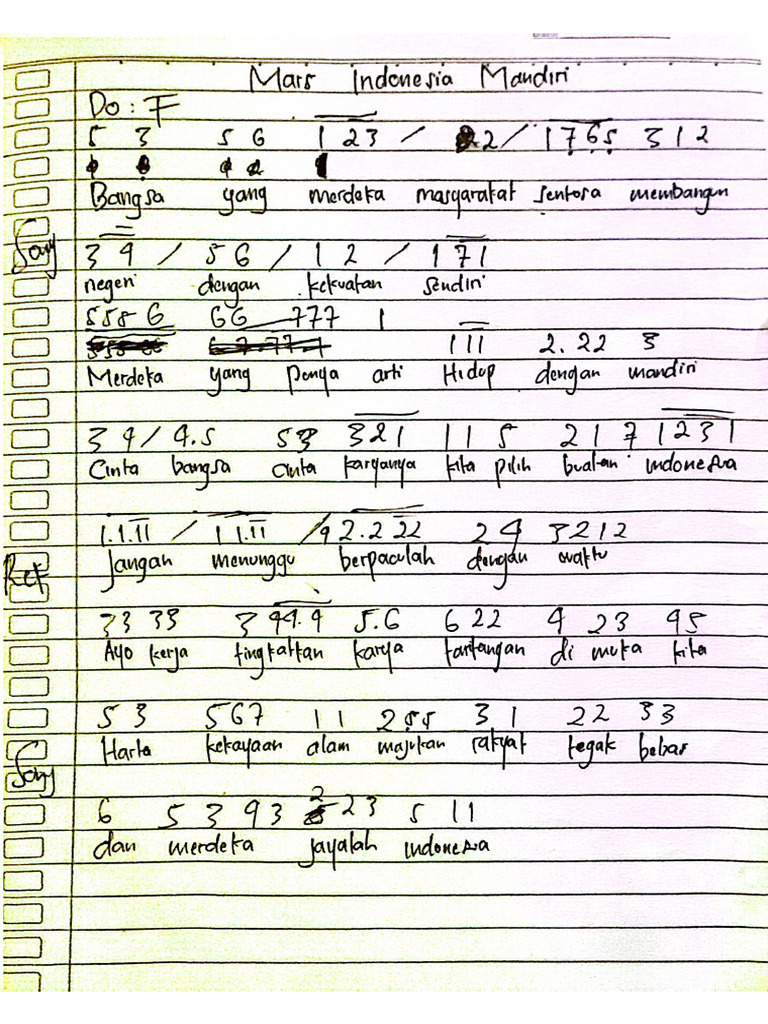 Mars Indonesia Mandiri
Do: F
5 3 5 6 1 23 / 22 / 1765 312
Bangsa yang merdeka masyarakat sentosa membangun
Song
3 4 / 56 / 1 2 / 1 71
negeri dengan kekuatan sendiri
555 6 66 777 1
111 2.22 3
Merdeka yang punya arti Hidup dengan mandiri
3 4 / 4.5 53 321 11 5 2 1 7 1231
Cinta bangsa cinta karyanya kita pilih buatan indonesia
1.1.11 / 1 1.11 / 2.2 22 24 3212
Jangan menunggu berpaculah dengan waktu
Ref
33 33 3 44.4 5.6 6 22 4 23 45
Ayo kerja tingkatkan karya tantangan di muka kita
5 3 567 11 255 31 22 33
Harta kekayaan alam majukan rakyat tegak bebas
Song
6 5 3 43 2 23 5 11
dan merdeka jayalah indonesia